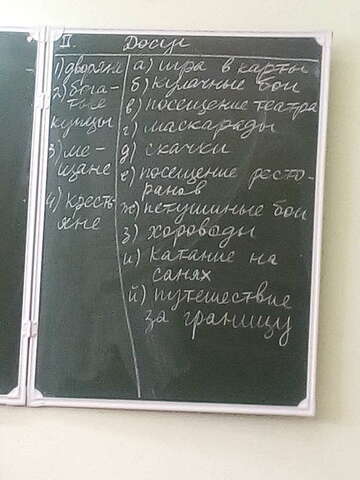 II. Досуг
1) дворяне
2) бога-
тые
купцы
3) ме-
щане
4) кресть-
яне
а) игра в карты
б) кулачные бои
в) посещение театра
г) маскарады
д) скачки
е) посещение ресто-
ранов
ж) петушиные бои
з) хороводы
и) катание на
санях
й) путешествие
за границу